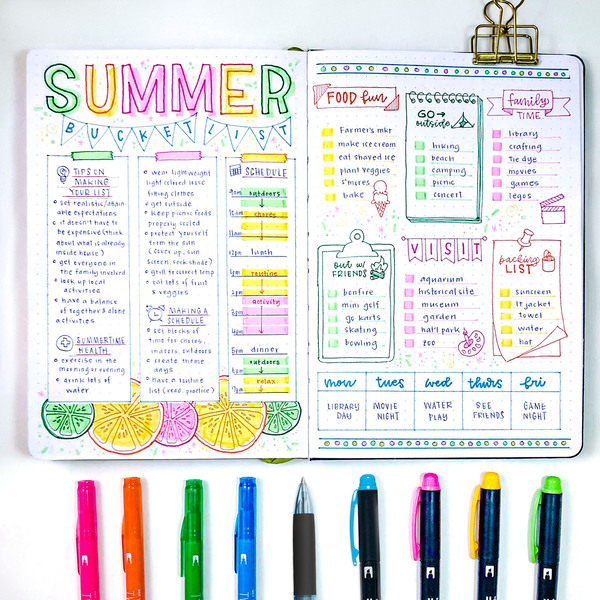 SUMMER
BUCKET LIST
TIPS ON
MAKING
YOUR LIST
set realistic/attain-
able expectations
it doesn't have to
be expensive (think
about what is already
inside house)
get everyone in
the family involved
look up local
activities
have a balance
of together & alone
activities
SUMMERTIME
HEALTH
exercise in the
morning or evening
drink lots of
water
wear light weight
light colored loose
fitting clothes
get outside
keep picnic foods
properly sealed
protect yourself
from the sun
(cover up, sun
screen, seek shade)
grill to correct temp
eat lots of fruit
& veggies
MAKING A
SCHEDULE
set blocks of
time for chores,
indoors, outdoors
create theme
days
have a routine
list (read, practice)
SCHEDULE
9am outdoors
10am chores
11am
12pm lunch
1pm routine
2pm activity
3pm
4pm
5pm dinner
outdoors
relax
FOOD fun
Farmer's mkt
make ice cream
eat shaved ice
plant veggies
S'mores
bake
GO→
outside
hiking
beach
camping
picnic
concert
family
TIME
library
crafting
Tie dye
movies
games
legos
out w/
FRIENDS
bonfire
mini golf
go karts
skating
bowling
VISIT
aquarium
historical site
museum
garden
nat'l park
zoo
packing
LIST
sunscreen
lt jacket
towel
water
hat
mon tues wed thurs fri
LIBRARY DAY
MOVIE NIGHT
WATER PLAY
SEE FRIENDS
GAME NIGHT